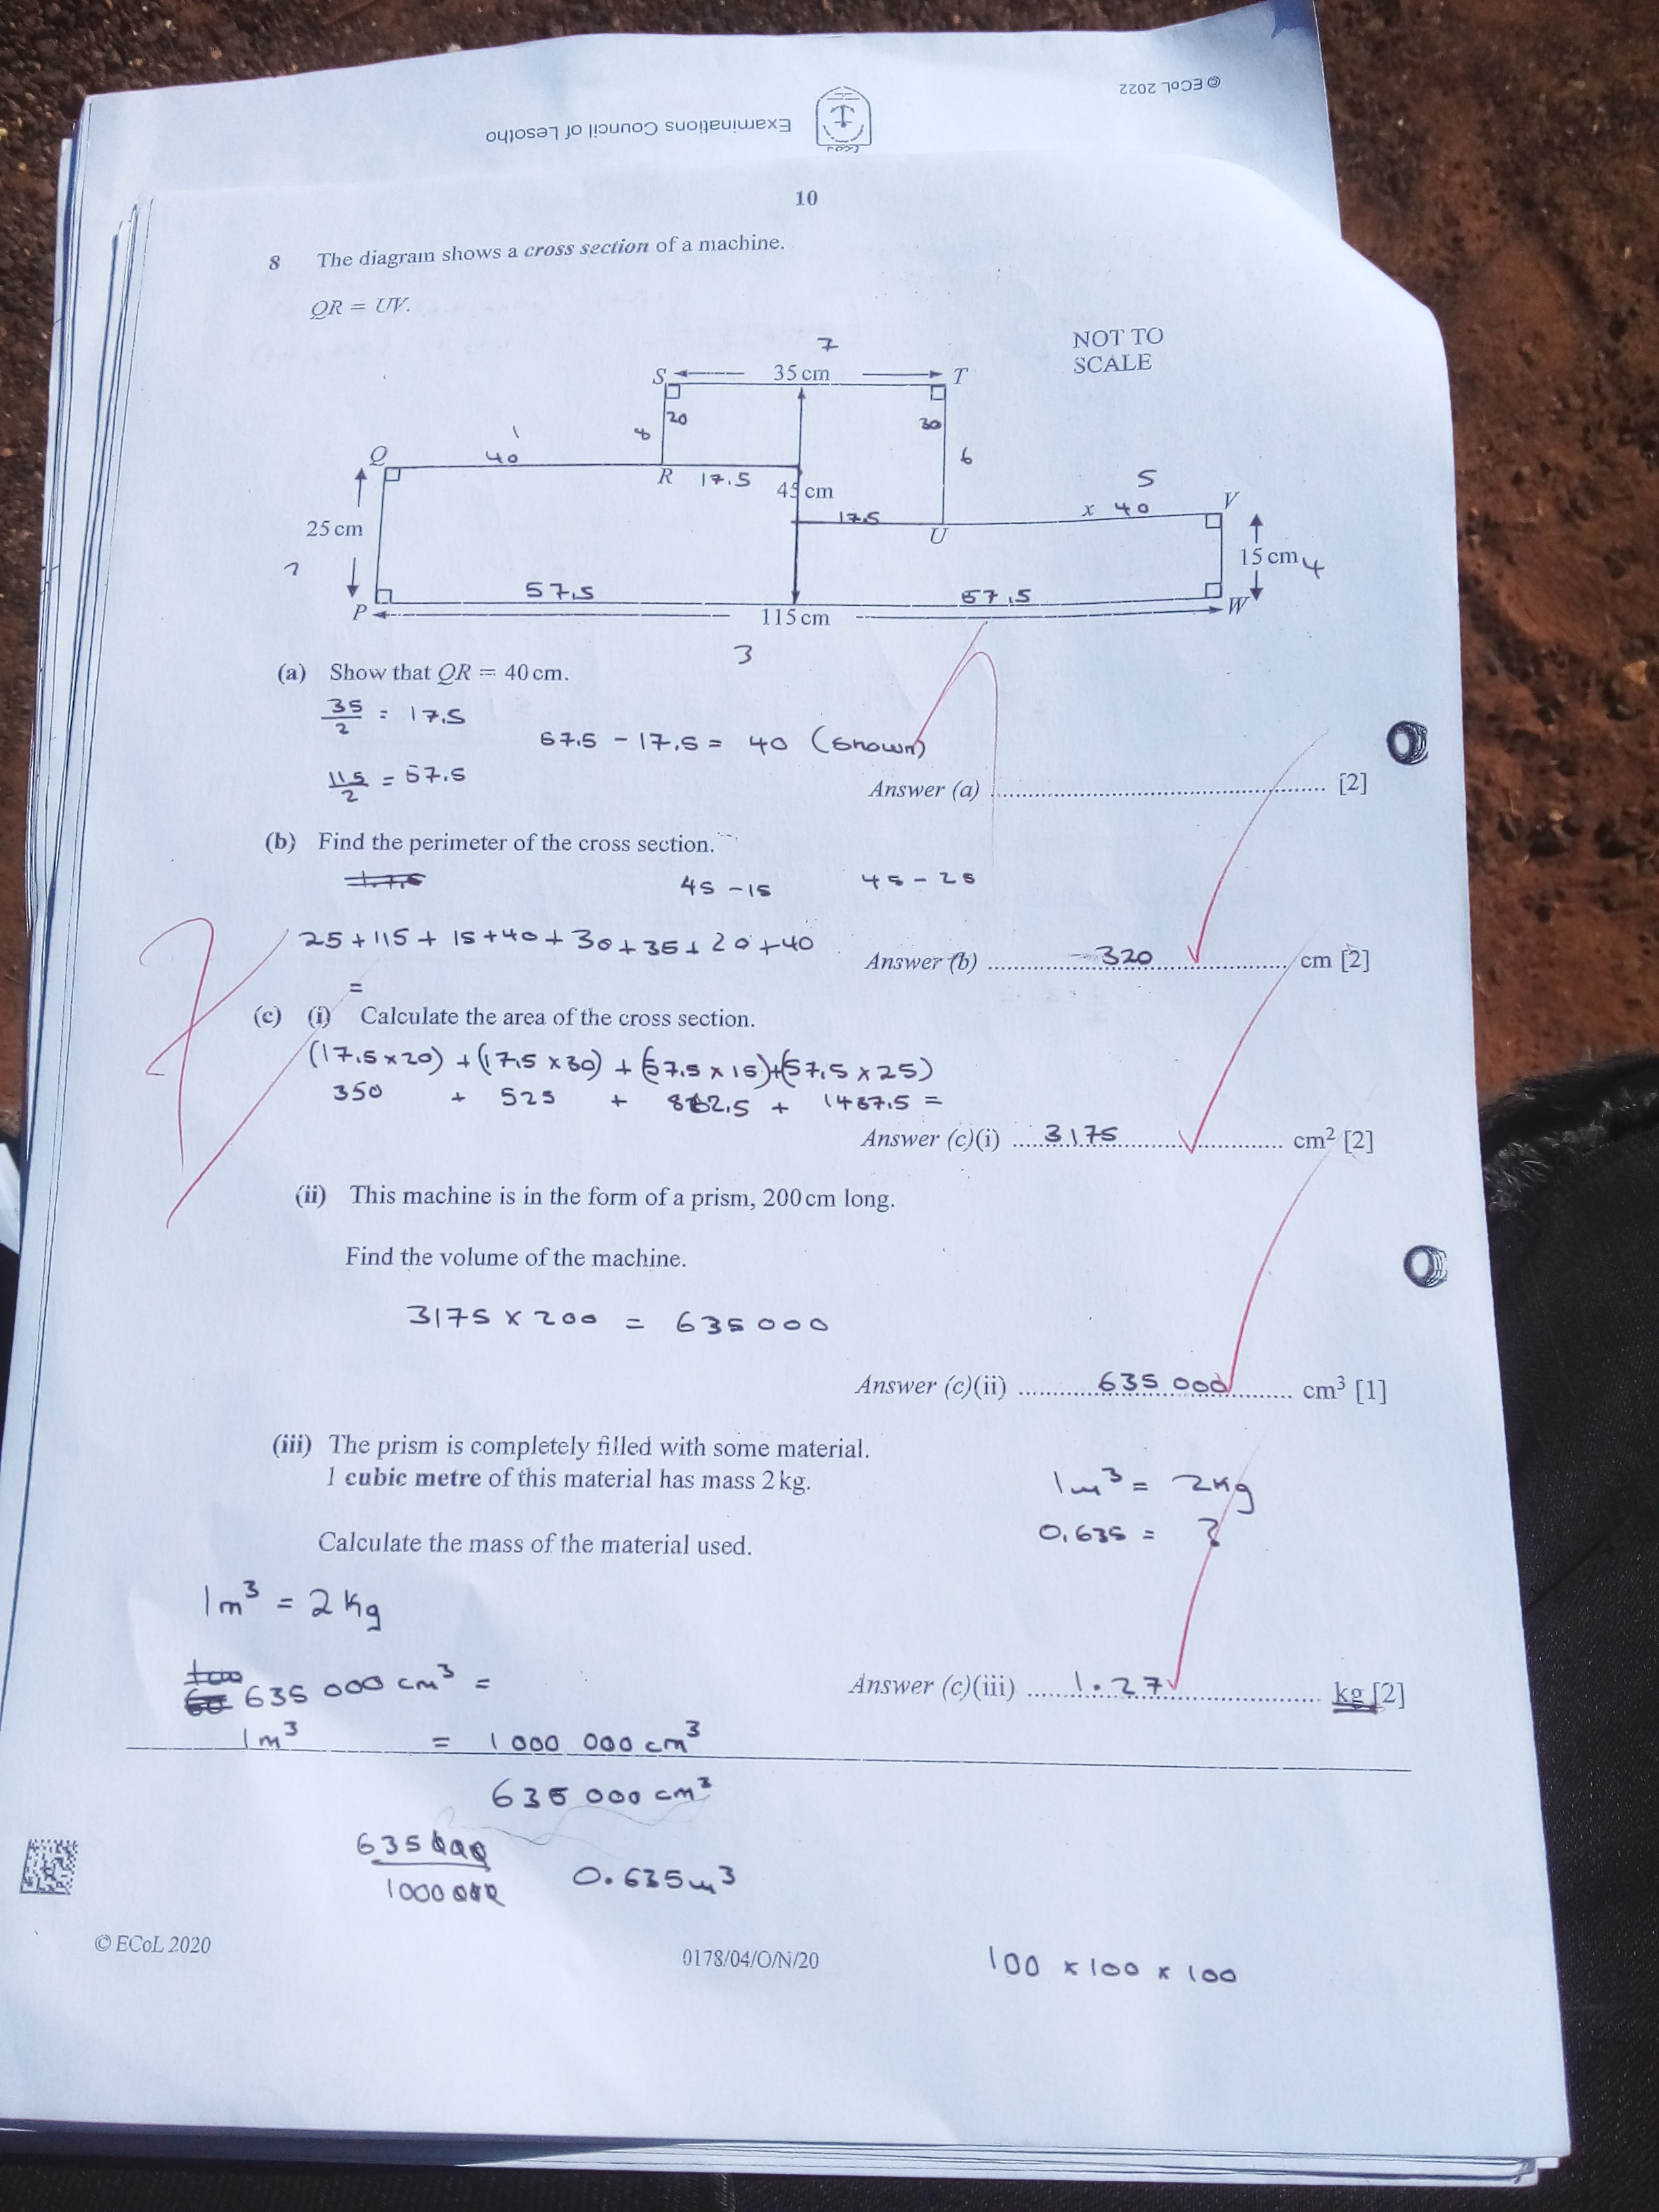 © ECoL 2022
Examinations Council of Lesotho
10
8 The diagram shows a cross section of a machine.
QR = UV.
NOT TO
SCALE
7
S 35 cm T
20 30
8 6
1
Q 40
R 17.5
45 cm
5
x 40 V
17.5
U
25 cm
2
15 cm 4
57.5 57.5
P W
115 cm
3
(a) Show that QR = 40 cm.
35/2 = 17.5
57.5 - 17.5 = 40 (Shown)
115/2 = 57.5
Answer (a) .......... [2]
(b) Find the perimeter of the cross section.
45 - 15 45 - 25
25 + 115 + 15 + 40 + 30 + 35 + 20 + 40
=
Answer (b) 320 cm [2]
(c) (i) Calculate the area of the cross section.
(17.5 x 20) + (17.5 x 30) + (57.5 x 15) + (57.5 x 25)
350 + 525 + 862.5 + 1437.5 =
Answer (c)(i) 3175 cm² [2]
(ii) This machine is in the form of a prism, 200 cm long.
Find the volume of the machine.
3175 x 200 = 635 000
Answer (c)(ii) 635 000 cm³ [1]
(iii) The prism is completely filled with some material.
1 cubic metre of this material has mass 2 kg.
1m³ = 2kg
0.635 = ?
Calculate the mass of the material used.
1m³ = 2kg
635 000 cm³ =
Answer (c)(iii) 1.27 kg [2]
1m³ = 1 000 000 cm³
635 000 cm³
635 000 / 1000 000
0.635m³
© ECoL 2020
0178/04/O/N/20
100 x 100 x 100